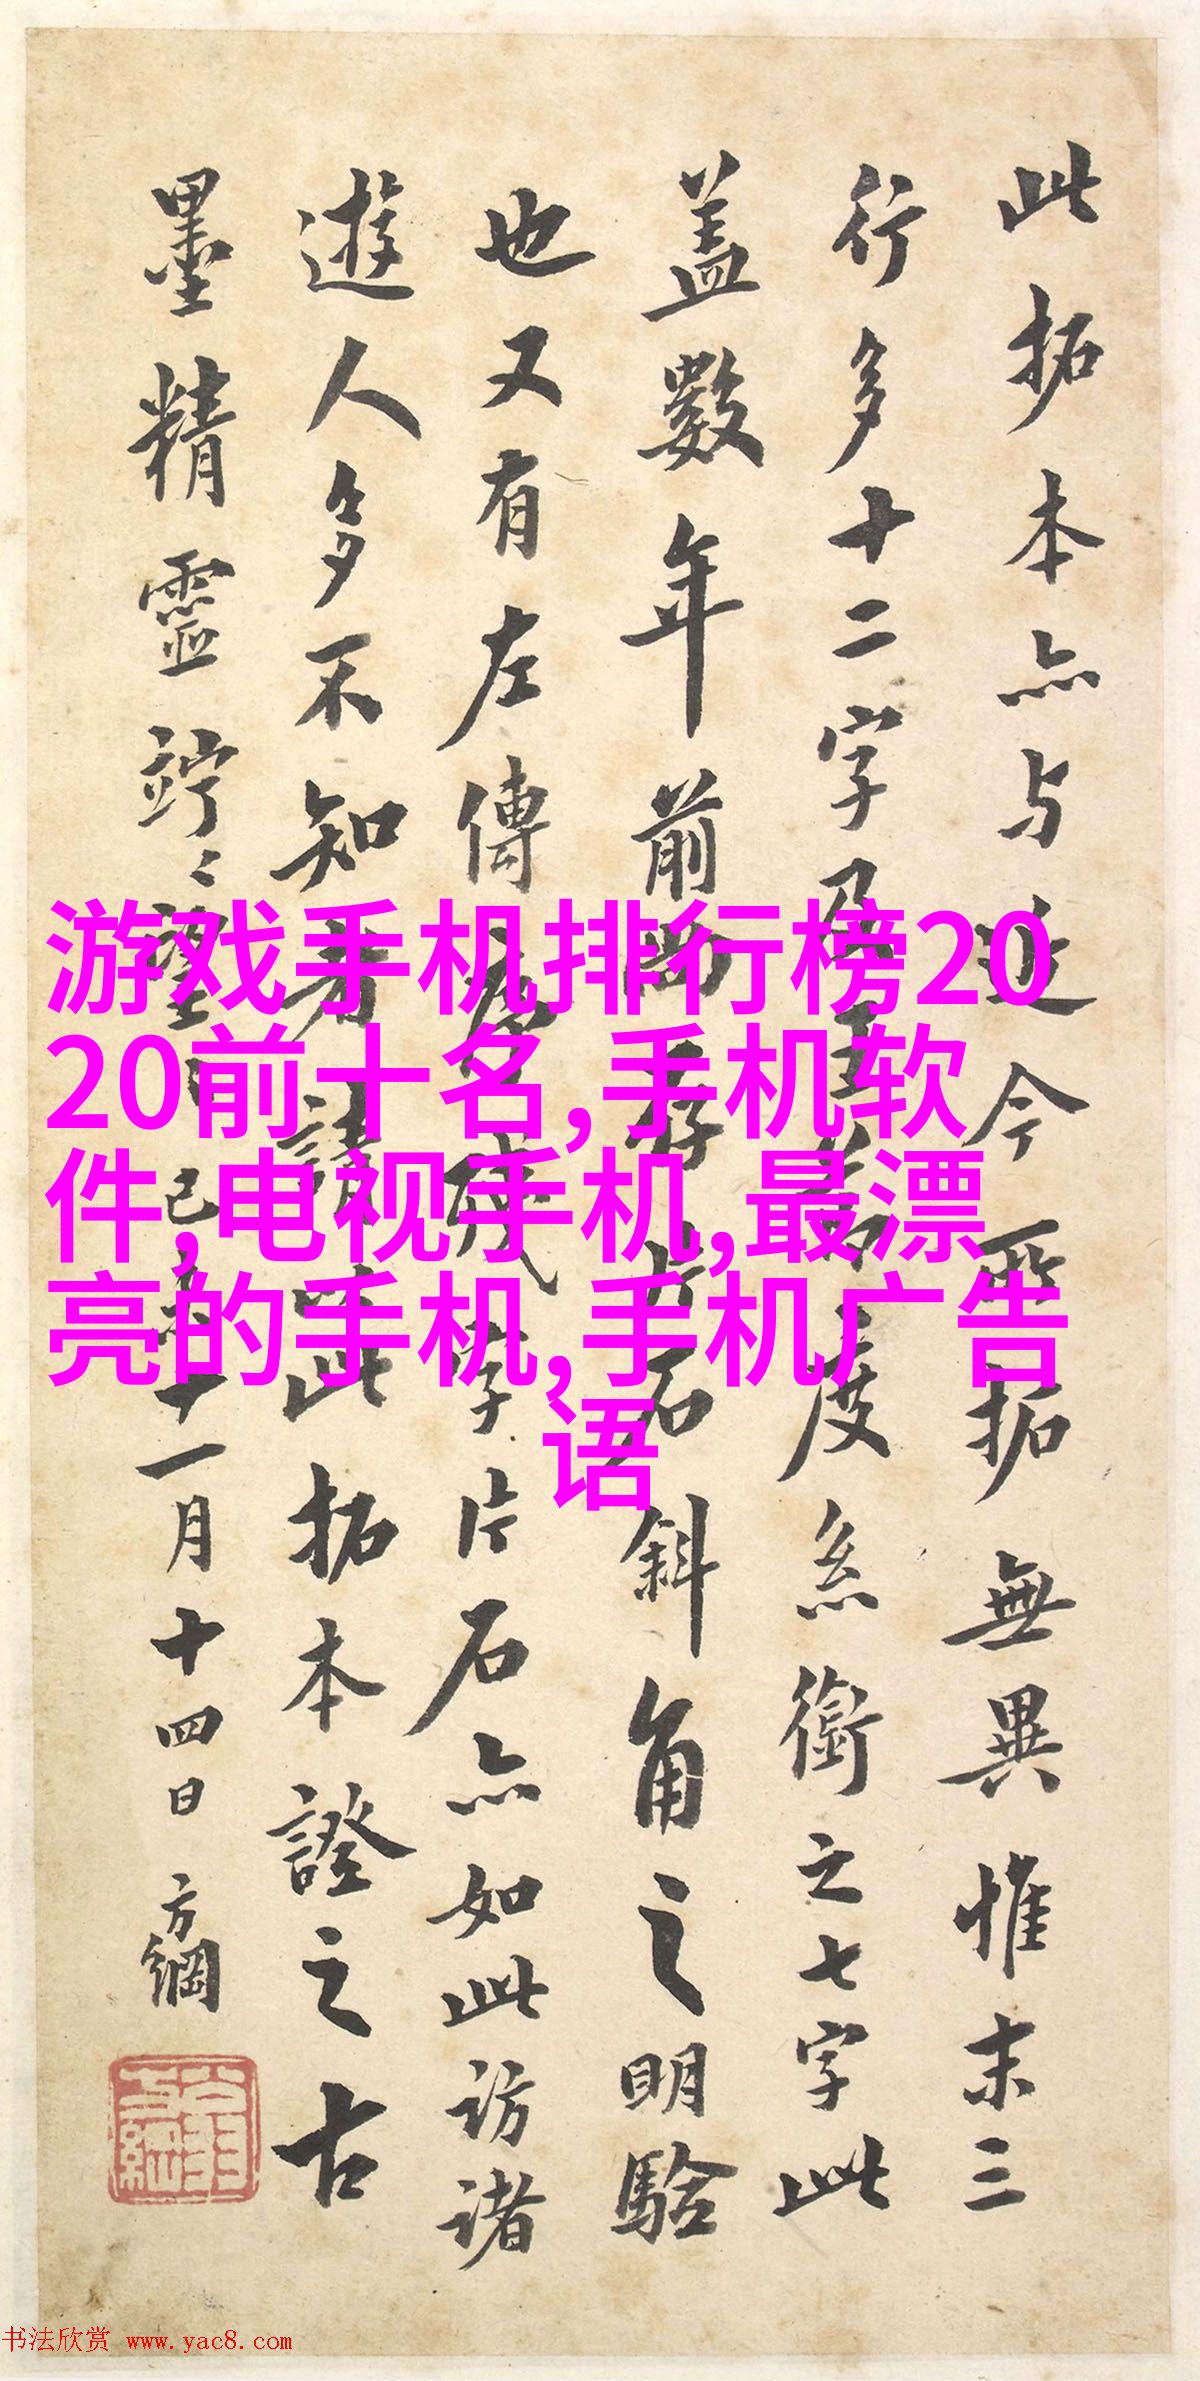 此拓本亦与近今所拓無異惟末三
行多十二字度系銜之七字此
蓋數年前尚存片石斜角之明驗
也又有左傳字片石亦如此訪諸
遊人多不知者請此拓本證之古
墨精靈竚〻望己十一月十四日 方綱
游戏手机排行榜20
20前十名,手机软
件,电视手机,最漂
亮的手机,手机广告
语
书法欣赏 www.yac8.com